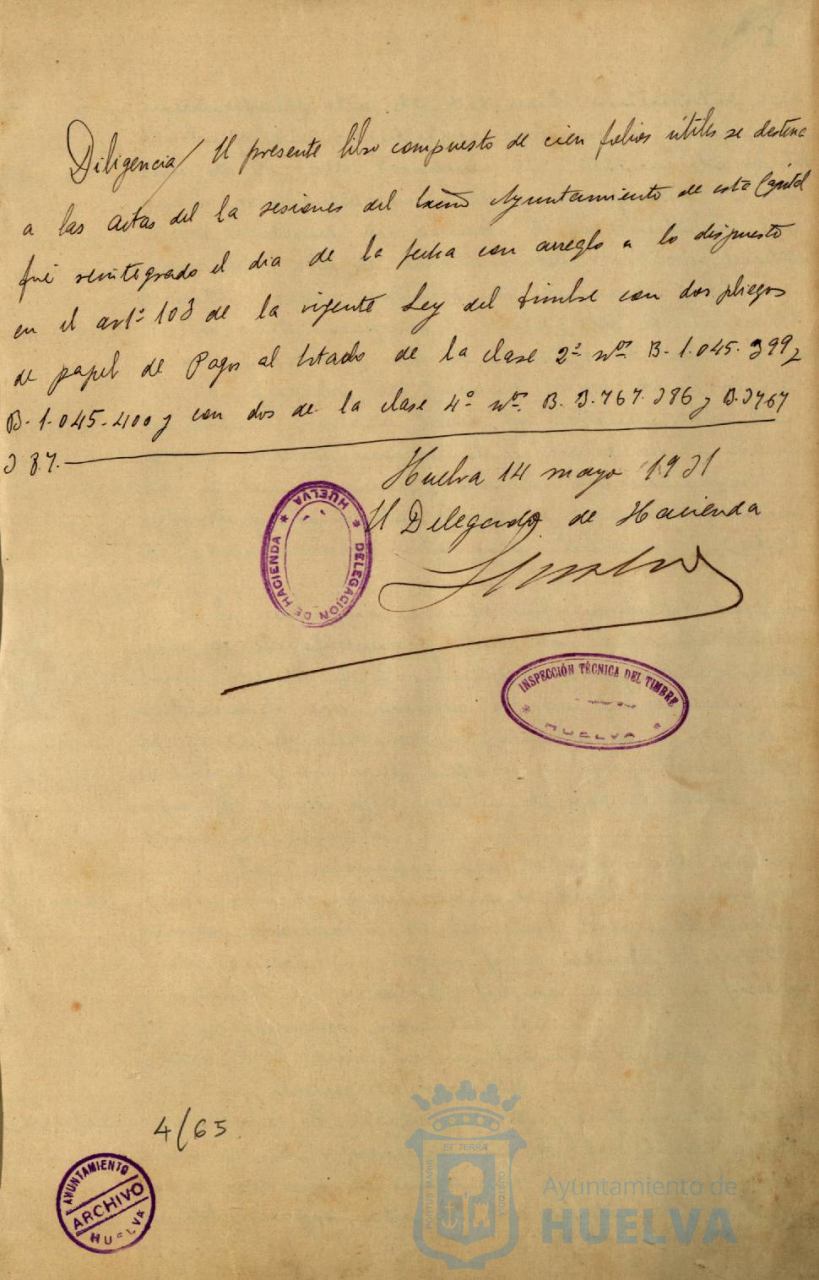 Diligencia/ El presente libro compuesto de cien folios útiles se destina
a las actas del la sesiones del Excmo Ayuntamiento de esta Capital
fué reintegrado el dia de la fecha con arreglo a lo dispuesto
en el artº 103 de la vigente Ley del timbre con dos pliegos
de papel de Pagos al Estado de la clase 2ª nos B-1.045.399 y
B-1.045-400 y con dos de la clase 4ª nos B. 3.767.386 y B.3767
387.
Huelva 14 mayo 1931
El Delegado de Hacienda
* HUELVA * DELEGACION DE HACIENDA
INSPECCIÓN TÉCNICA DEL TIMBRE
* HUELVA *
4/65
AYUNTAMIENTO
ARCHIVO
HUELVA
Ayuntamiento de
HUELVA